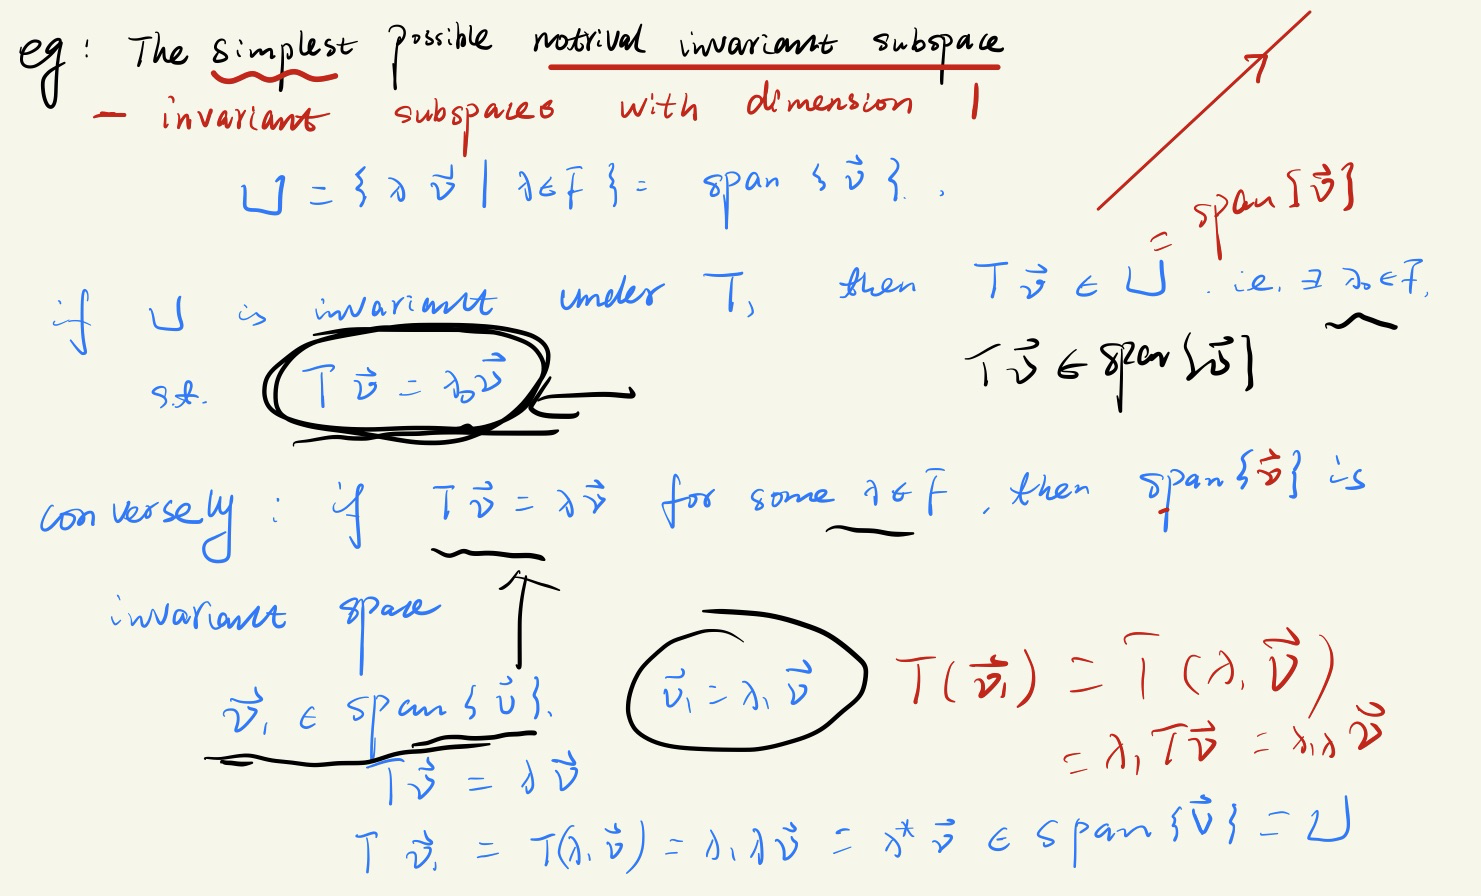 eg: The simplest possible notrival invariant subspace
— invariant subspaces with dimension 1
U = { λ v⃗ | λ ∈ F } = span { v⃗ }.
= span{v⃗}
if U is invariant under T, then T v⃗ ∈ U. i.e. ∃ λ₀ ∈ F,
s.t. T v⃗ = λ₀ v⃗
T v⃗ ∈ span{v⃗}
conversely : if T v⃗ = λ v⃗ for some λ ∈ F, then span{v⃗} is
invariant space
v⃗₁ ∈ span{v⃗}. v⃗₁ = λ₁ v⃗ T(v⃗₁) = T(λ₁ v⃗)
= λ₁ T v⃗ = λ₁ λ v⃗
T v⃗ = λ v⃗
T v⃗₁ = T(λ₁ v⃗) = λ₁ λ v⃗ = λ* v⃗ ∈ span{v⃗} = U